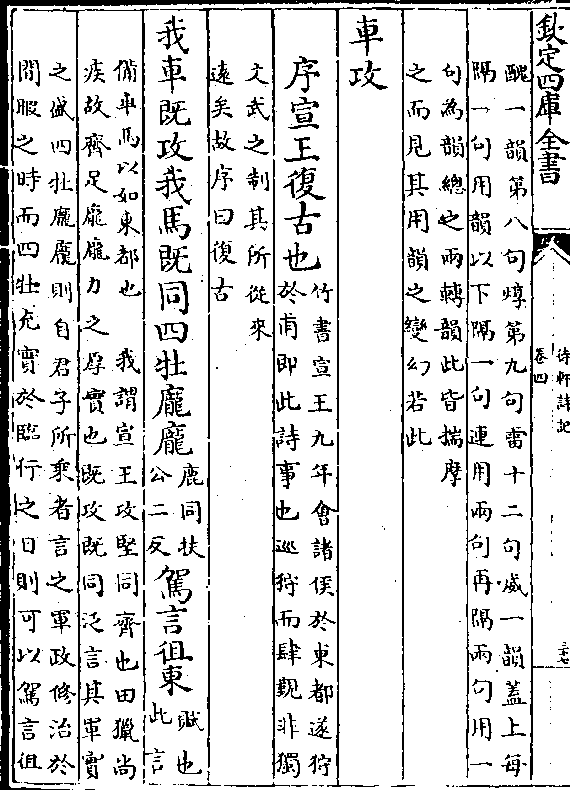 欽定四庫全書
待軒詩記
卷四
醜一韻第八句焞第九句雷十二句威一韻蓋上每
隔一句用韻以下隔一句連用兩句再隔兩句用一
句為韻總之兩轉韻此皆揣摩
之而見其用韻之變幻若此
車攻
序宣王復古也竹書宣王九年會諸侯於東都遂狩
於甫即此詩事也巡狩而肆覲非獨
文武之制其所從來
遠矣故序曰復古
我車既攻我馬既同四牡龐龐鹿同扶公二反駕言徂東賦也此言
備車馬以如東都也 我謂宣王攻堅同齊也田獵尚
疾故齊足龐龐力之厚實也既攻既同泛言其軍實
之盛四牡龐龐則自君子所乘者言之軍政修治於
間暇之時而四牡充實於臨行之日則可以駕言徂